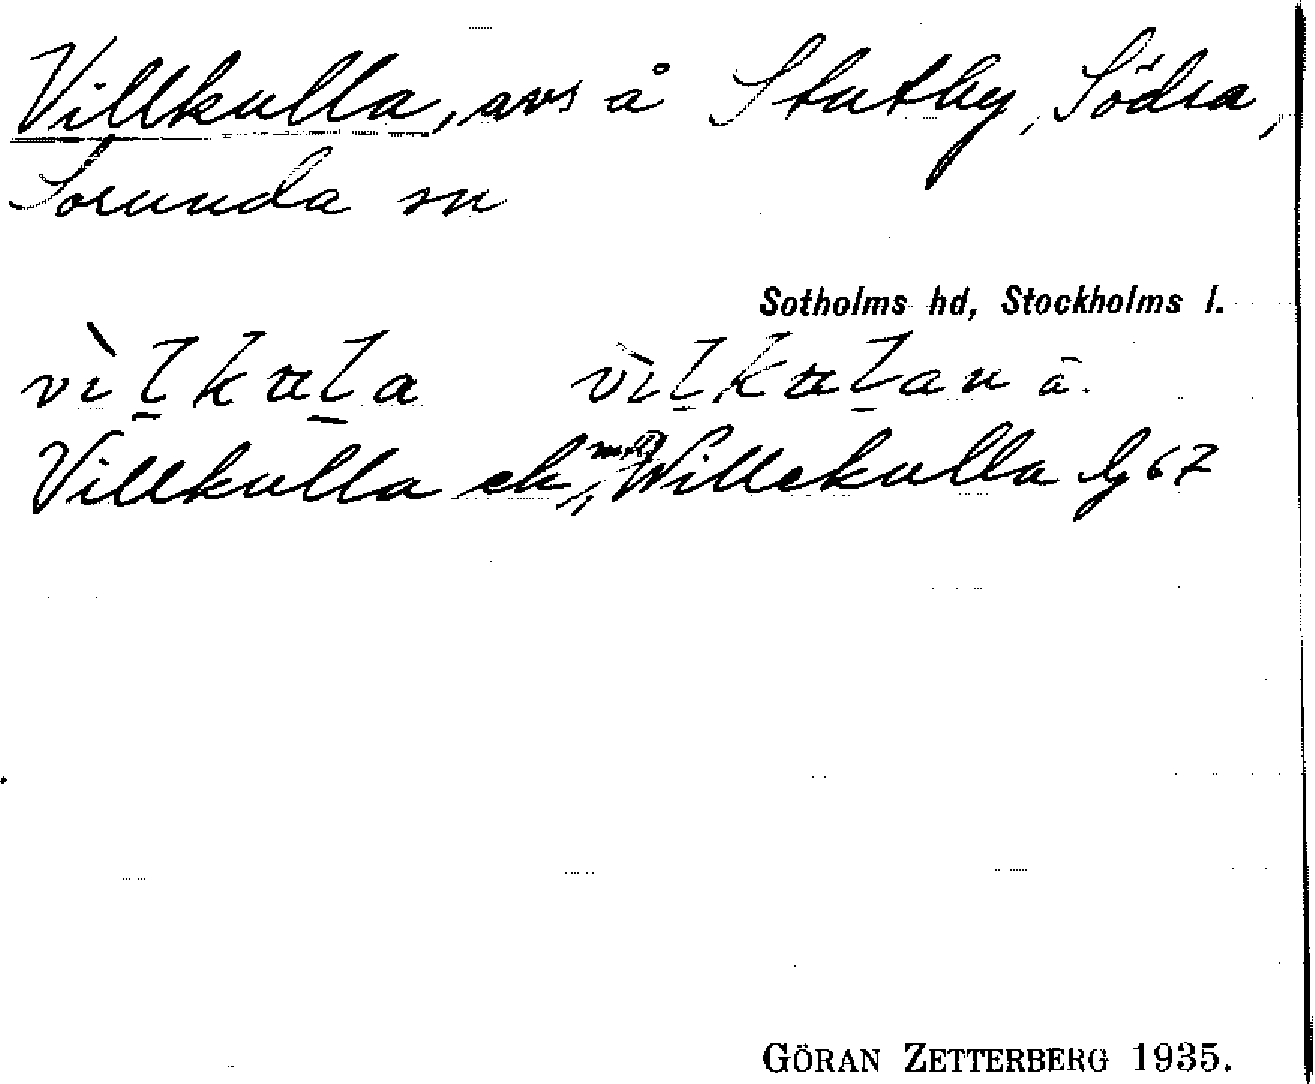 Villkulla, avs å Stutby, Södra,
Sorunda sn
Sotholms hd, Stockholms l.
vìl̲kul̲a vìl̲kul̲an ä.
Villkulla ek, Willekulla lg 67
GÖRAN ZETTERBERG 1935.